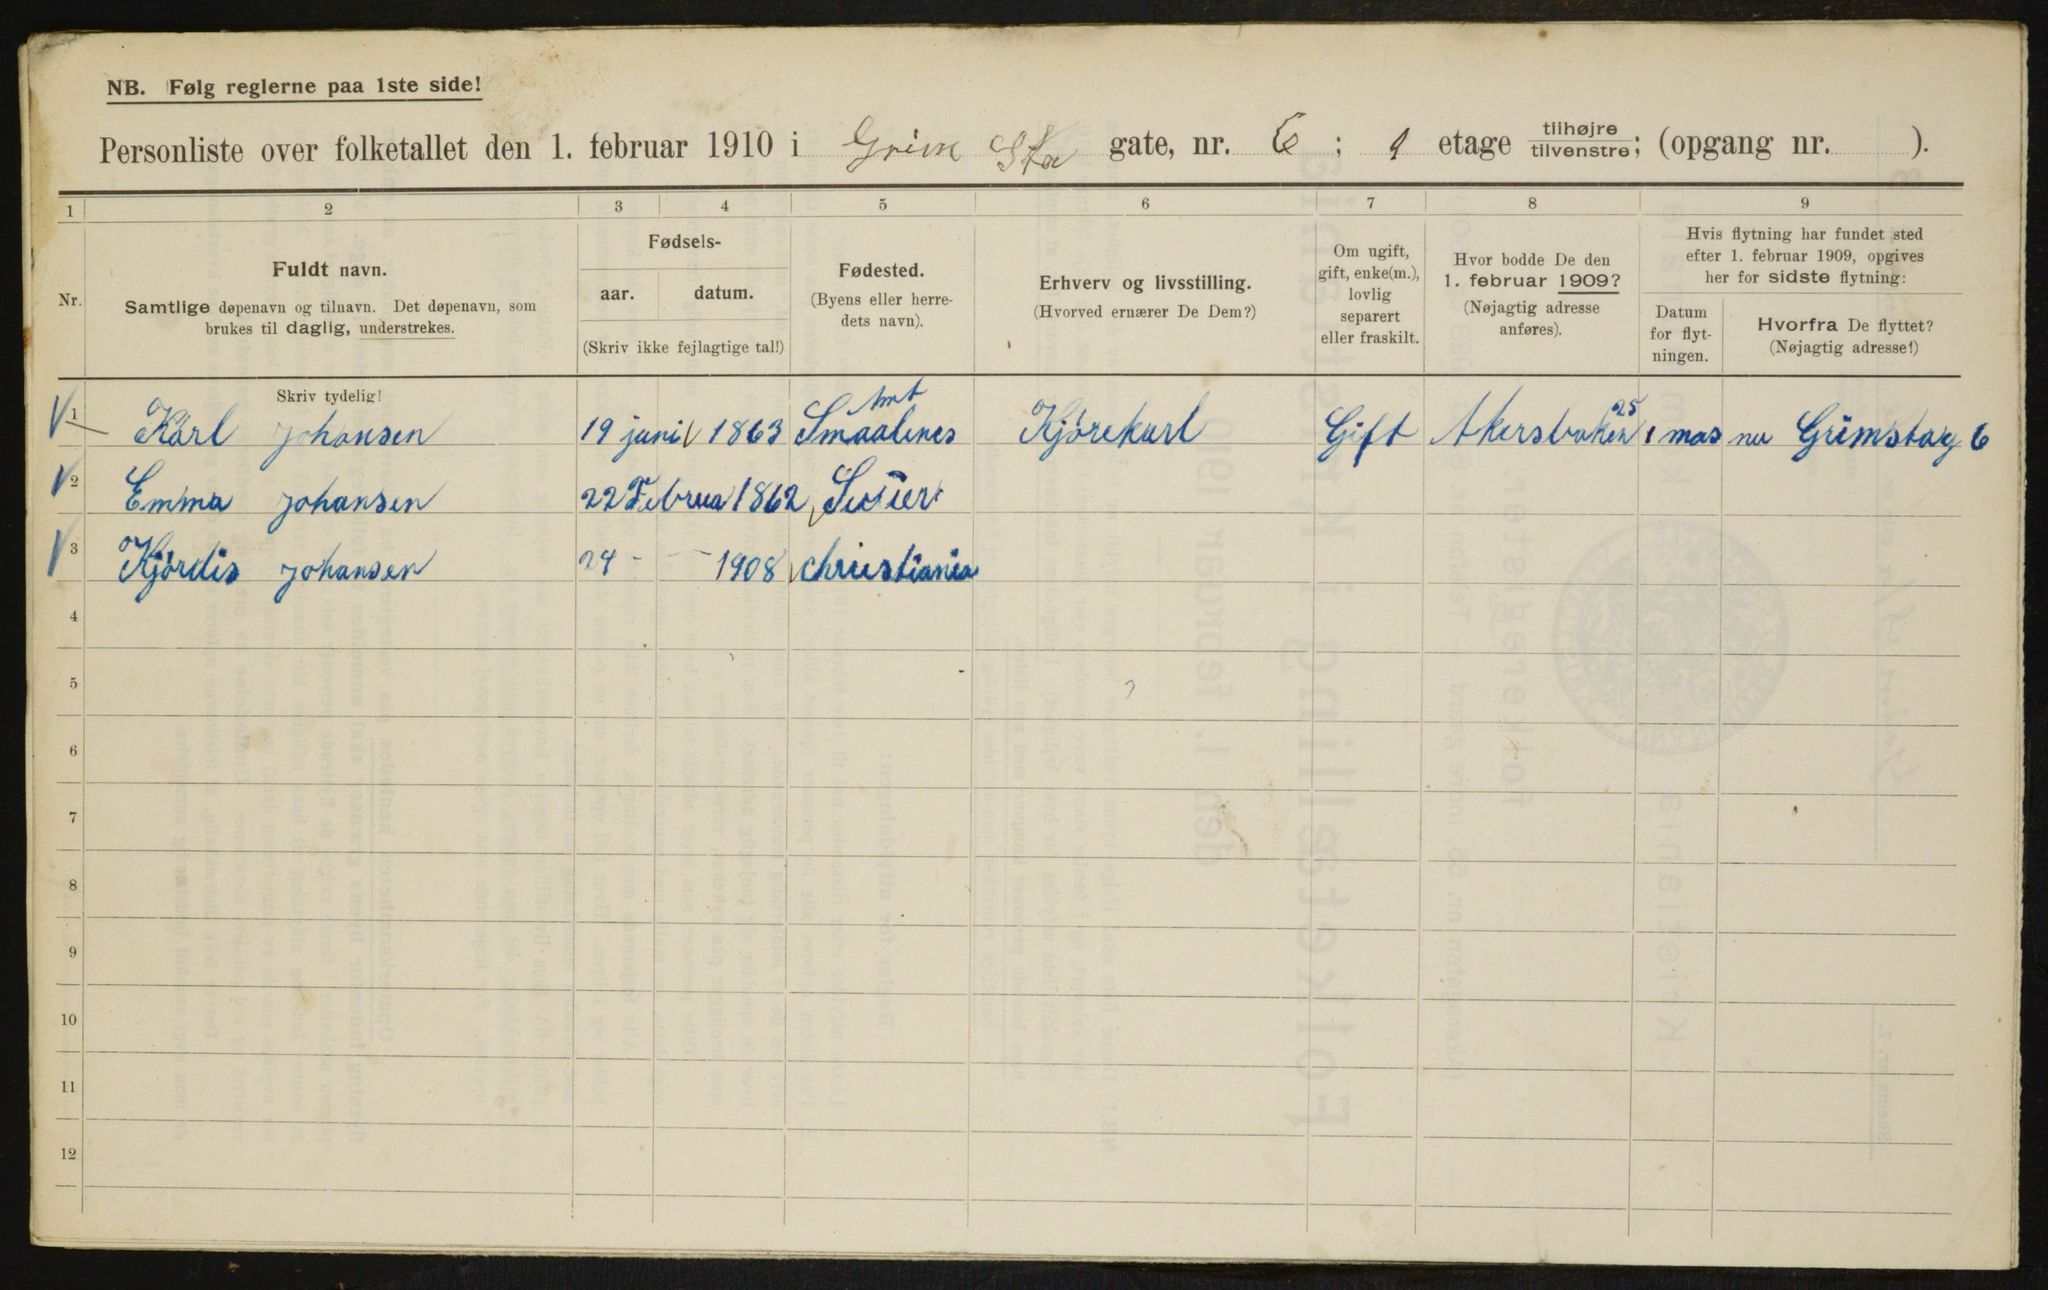 NB. Følg reglerne paa 1ste side!
Personliste over folketallet den 1. februar 1910 i Grim Sta gate, nr. 6 ; 1 etage tilhøjre tilvenstre; (opgang nr. ).
1 2 3 4 5 6 7 8 9
Nr.
Fuldt navn.
Samtlige døpenavn og tilnavn. Det døpenavn, som
brukes til daglig, understrekes.
Fødsels-
aar. datum.
(Skriv ikke fejlagtige tal!)
Fødested.
(Byens eller herre-
dets navn).
Erhverv og livsstilling.
(Hvorved ernærer De Dem?)
Om ugift,
gift, enke(m.),
lovlig
separert
eller fraskilt.
Hvor bodde De den
1. februar 1909?
(Nøjagtig adresse
anføres).
Hvis flytning har fundet sted
efter 1. februar 1909, opgives
her for sidste flytning:
Datum
for flyt-
ningen.
Hvorfra De flyttet?
(Nøjagtig adresse!)
Skriv tydelig!
1 Karl Johansen 19 juni 1863 Smaalenes Amt Kjørekarl Gift Akersbaken 25 1 mas nu Grimstag 6
2 Emma Johansen 22 Februa 1862
3 Hjördis Johansen 24 - - - 1908 christiania
4
5
6
7
8
9
10
11
12